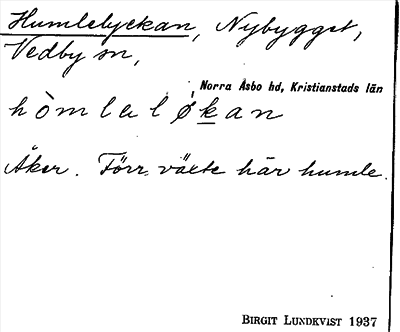 Humlelyckan, Nybygget,
Vedby sn,
Norra Åsbo hd, Kristianstads län
hòmlaløkan
Åker. Förr växte här humle.
BIRGIT LUNDKVIST 1937